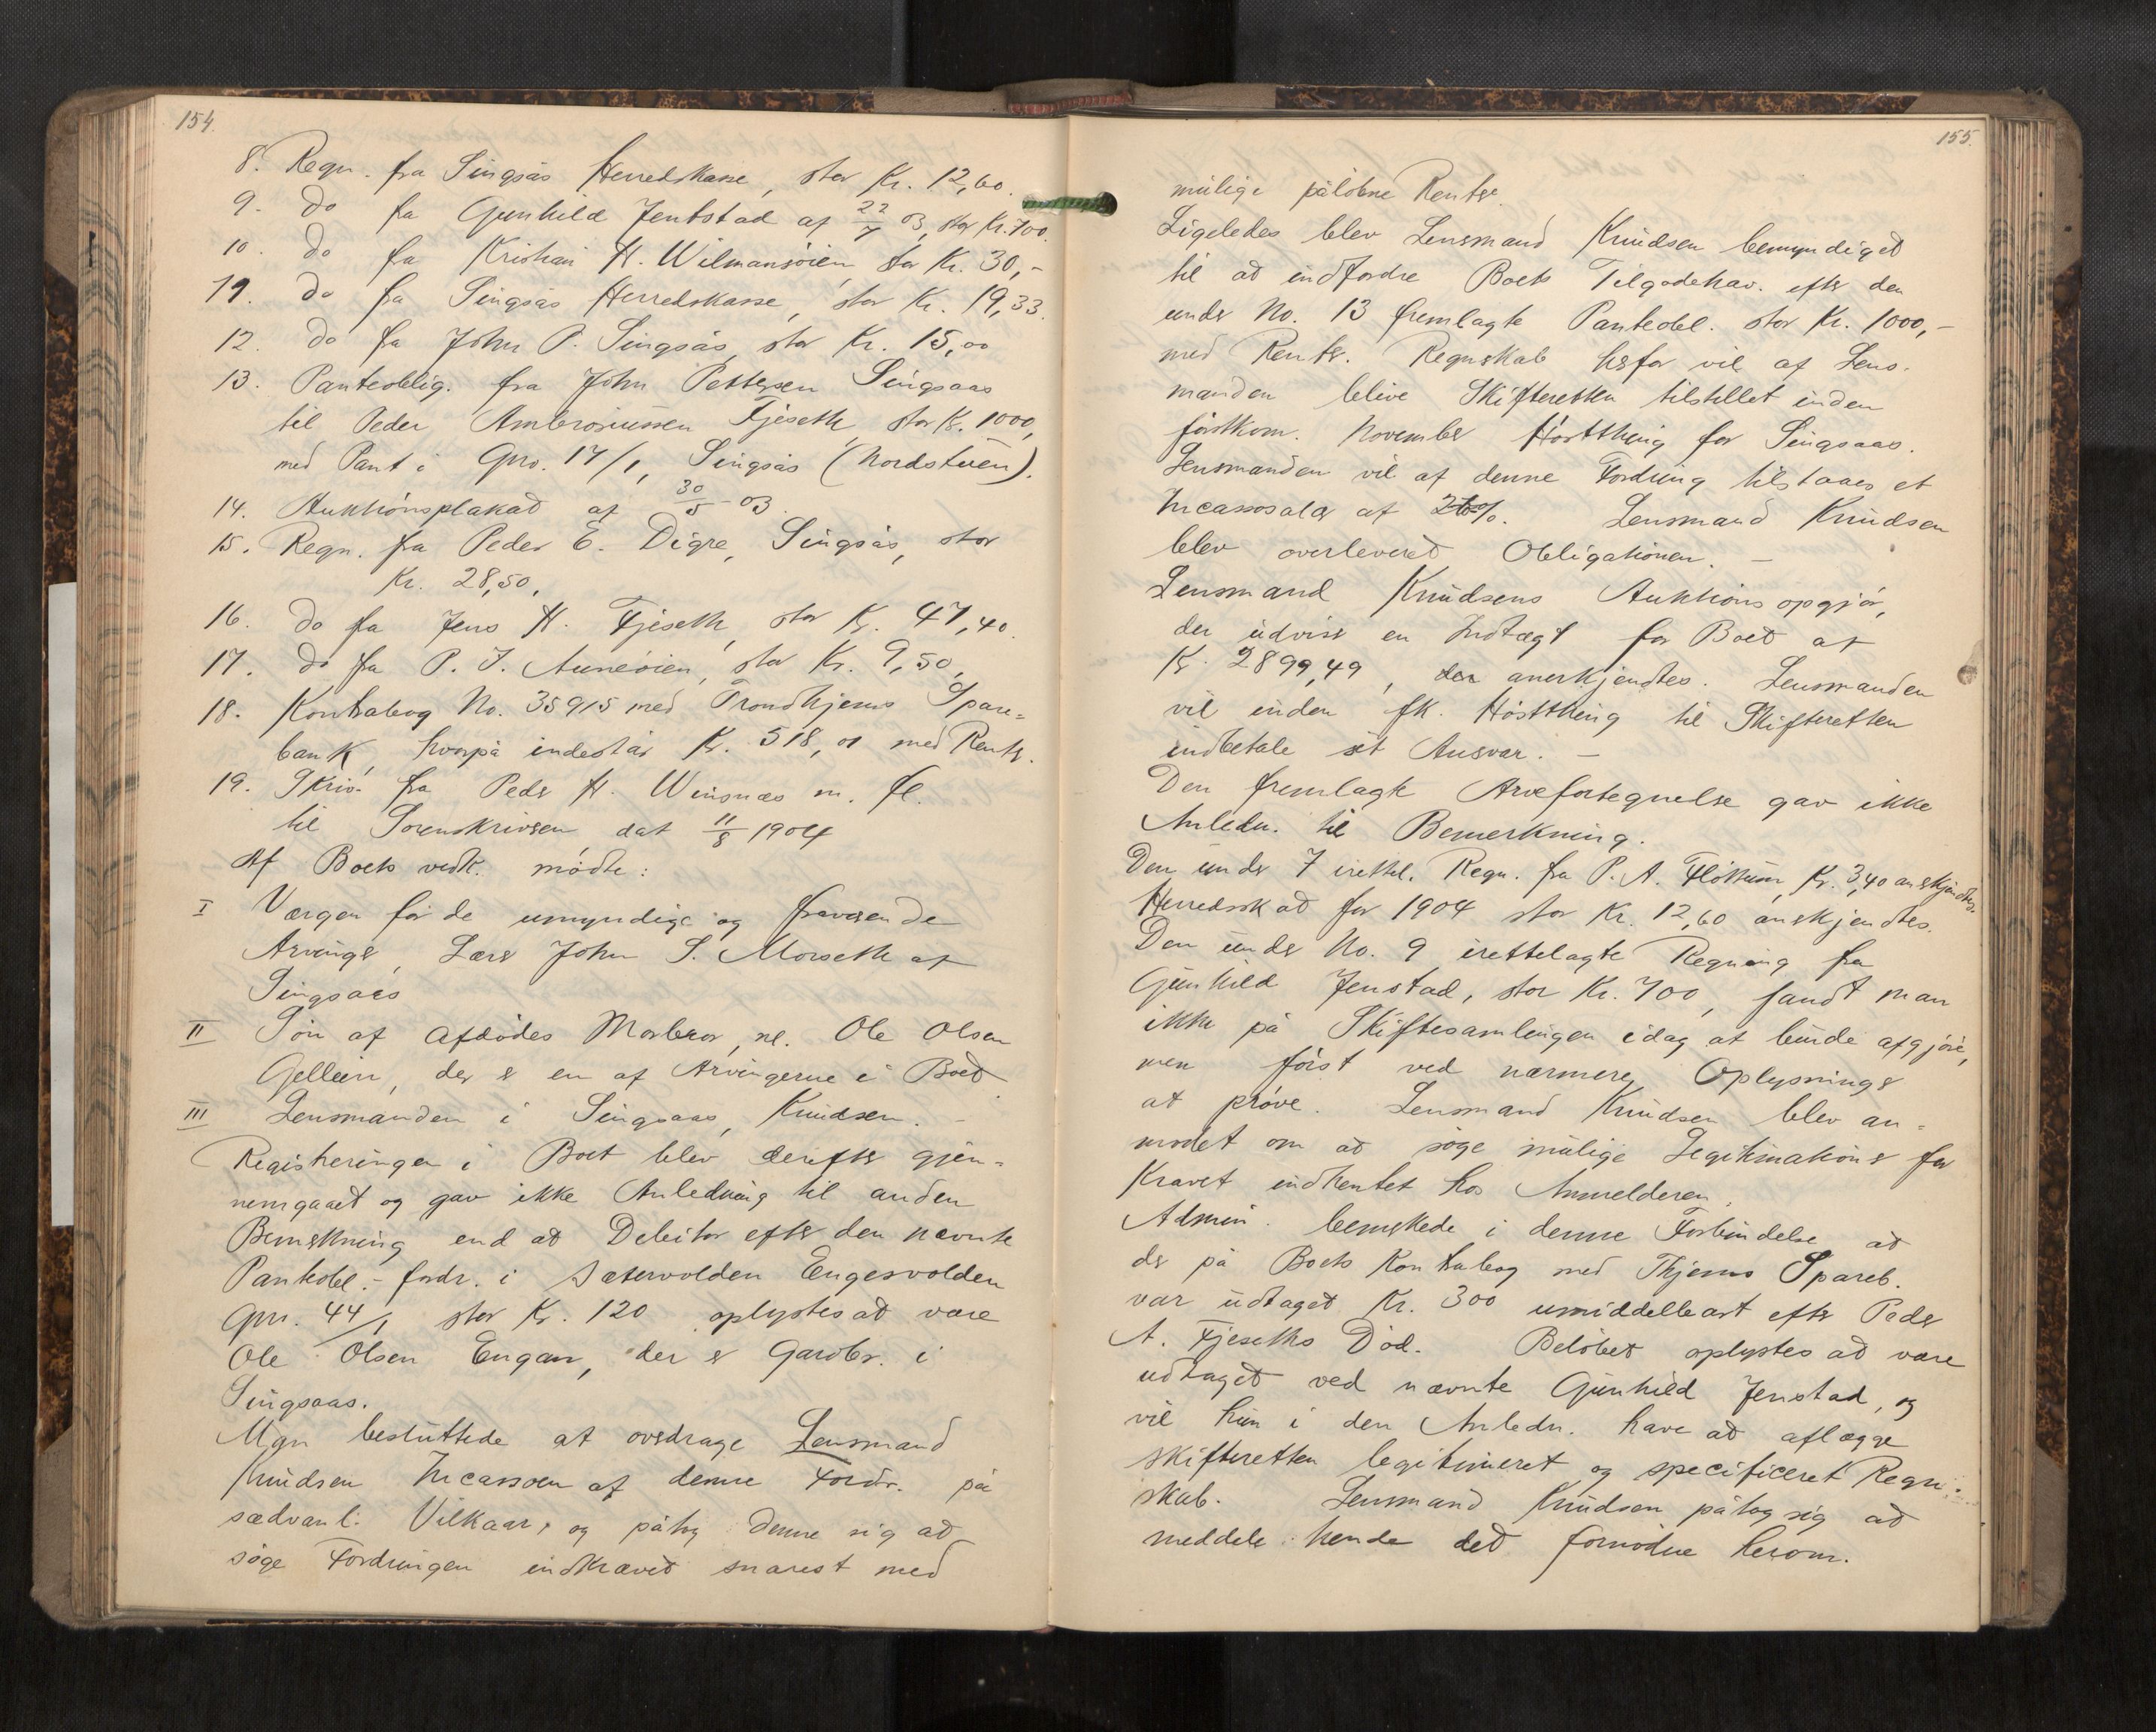 154.
8. Regn. fra Singsås Herredskasse, stor Kr. 12,60.
9. do fra Gunhild Jentstad af 22/7 03, stor Kr. 700.
10. do fra Kristian H. Wilmansöien stor Kr. 30,-
11. do fra Singsås Herredskasse, stor Kr. 19,33.
12. do fra John P. Singsås, stor Kr. 15,00
13. Panteoblig. fra John Pettersen Singsaas
til Peder Ambrosiussen Fjeseth, stor Kr. 1000,
med Pant i Gno. 17/1, Singsås (Nordstuen).
14. Auktionsplakad af 30/5 - 03.
15. Regn. fra Peder E. Digre, Singsås, stor
Kr. 28,50,
16. do fra Jens H. Fjeseth, stor Kr. 47,40.
17. do fra P. J. Auneöien, stor Kr. 9,50,
18. Kontrabog No. 35915 med Trondhjems Spare-
bank, hvorpå indestår Kr. 518,01 med Rentr.
19. Skriv. fra Peder H. Winsnæs m. fl.
til Sorenskriveren dat 11/8 1904
Af Boets vedk. mödte:
I Værgen for de umyndige og fraværende
Arvinger, Lærer John S. Morseth af
Singsaas
II Sön af Afdödes Morbror, nl. Ole Olsen
Gellein, der er en af Arvingerne i Boet
III Lensmanden i Singsaas, Knudsen. -
Registreringen i Boet blev derefter gjen-
nemgaaet og gav ikke Anledning til anden
Bemerkning end at Debitor efter den nævnte
Panteobl. - fordr. i Sætervolden Engesvolden
Gnr. 44/1 stor Kr. 120 oplystes at være
Ole Olsen Engan, der er Gardbr. i
Singsaas.
Man besluttede at overdrage Lensmand
Knudsen Incassoen af denne Fordr. på
sædvanl. Vilkaar, og påtog denne sig at
söge Fordringen indkrævet snarest med
155.
mulige pålöbne Renter.
Ligeledes blev Lensmand Knudsen bemyndiget
til at indfordre Boets Tilgodehav. efter den
under No. 13 fremlagte Panteobl. stor Kr. 1000,-
med Renter. Regnskab herfor vil af Lens-
manden blive Skifteretten tilstillet inden
förstkom. November Höstthing for Singsaas.
Lensmanden vil af denne Fordring tilstaaes et
Incassosalær af 2%. Lensmand Knudsen
blev overleveret Obligationen. -
Lensmand Knudsens Auktionsopgjör,
der udviser en Indtægt for Boet af
Kr. 2899,49, der anerkjendtes. Lensmanden
vil inden fk. Höstthing til Skifteretten
indbetale sit Ansvar. -
Den fremlagte Arvefortegnelse gav ikke
Anledn. til Bemerkning.
Den under 7 irettel. Regn. fra P. A. Flöttum, Kr. 3,40 anerkjendtes.
Herredsskat for 1904 stor Kr. 12,60 anerkjendtes.
Den under No. 9 irettelagte Regning fra
Gunhild Jenstad, stor Kr. 700, fandt man
ikke på Skiftesamlingen idag at burde afgjöre,
men först ved nærmere Oplysninger
at pröve. Lensmand Knudsen blev an-
modet om at söge mulige Legitimationer for
Kravet indhentet hos Anmelderen.
Admin. bemerkede i denne Forbindelse at
der på Boets Kontrabog med Thjems Spareb.
var udtaget Kr. 300 umiddelbart efter Peder
A. Fjeseths Död. Belöbet oplystes at være
udtaget ved nævnte Gunhild Jenstad, og
vil hun i den Anledn. have at aflægge
skifteretten legitimeret og specificeret Regn-
skab. Lensmand Knudsen påtog sig at
meddele hende det fornödne herom.